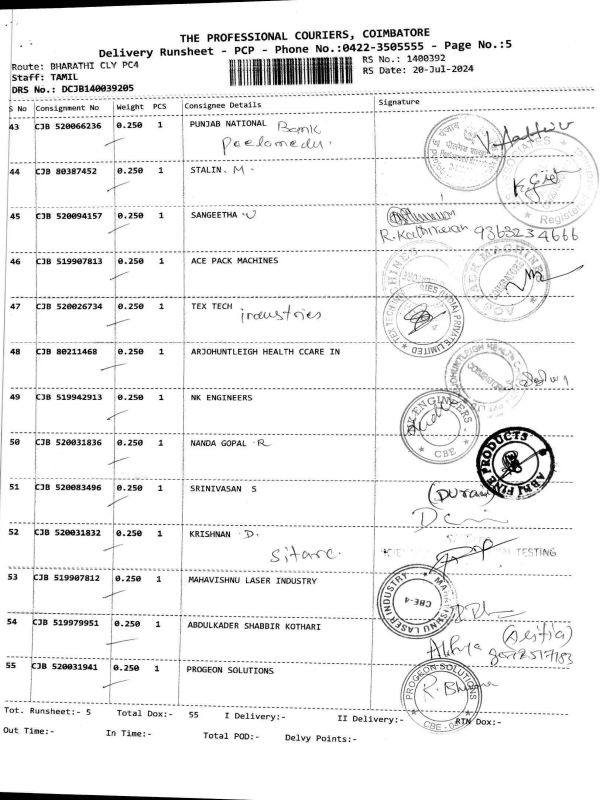 THE PROFESSIONAL COURIERS, COIMBATORE
Delivery Runsheet - PCP - Phone No.:0422-3505555 - Page No.:5
Route: BHARATHI CLY PC4
RS No.: 1400392
Staff: TAMIL
RS Date: 20-Jul-2024
DRS No.: DCJB140039205
S No Consignment No Weight PCS Consignee Details Signature
43 CJB 520066236 0.250 1 PUNJAB NATIONAL Bank
Peelamedu.
44 CJB 80387452 0.250 1 STALIN. M.
45 CJB 520094157 0.250 1 SANGEETHA U
R. Kathirvan 9363234666
46 CJB 519907813 0.250 1 ACE PACK MACHINES
47 CJB 520026734 0.250 1 TEX TECH industries
48 CJB 80211468 0.250 1 ARJOHUNTLEIGH HEALTH CCARE IN
49 CJB 519942913 0.250 1 NK ENGINEERS
NK ENGINEERS
CBE
50 CJB 520031836 0.250 1 NANDA GOPAL R
FINE PRODUCTS
51 CJB 520083496 0.250 1 SRINIVASAN S
52 CJB 520031832 0.250 1 KRISHNAN D.
Sitarc.
TESTING
53 CJB 519907812 0.250 1 MAHAVISHNU LASER INDUSTRY
MAHAVISHNU LASER INDUSTRY
CBE-4
54 CJB 519979951 0.250 1 ABDULKADER SHABBIR KOTHARI
55 CJB 520031941 0.250 1 PROGEON SOLUTIONS
PROGEON SOLUTIONS
Tot. Runsheet:- 5 Total Dox:- 55 I Delivery:- II Delivery:- RTN Dox:-
Out Time:- In Time:- Total POD:- Delvy Points:-